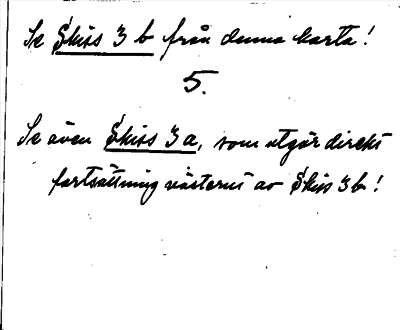 Se Skiss 3 b från denna karta!
5.
Se även Skiss 3a, som utgör direkt
fortsättning västerut av Skiss 3b!